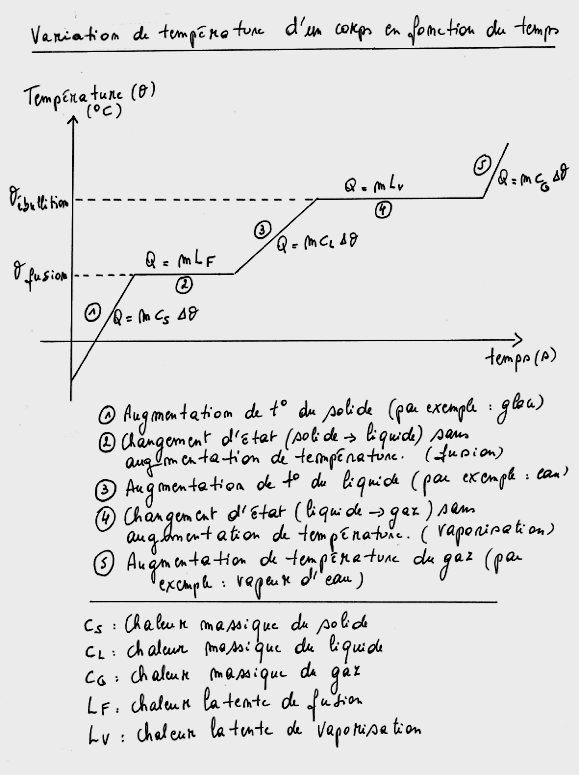 Variation de température d'un corps en fonction du temps
Température (θ)
(°C)
θébullition
Q = m Lv
④
⑤
Q = m CG Δθ
③
Q = m CL Δθ
θfusion
Q = m LF
②
①
Q = m Cs Δθ
temps (s)
① Augmentation de t° du solide (par exemple : glace)
② Changement d'état (solide → liquide) sans
augmentation de température. (fusion)
③ Augmentation de t° du liquide (par exemple : eau)
④ Changement d'état (liquide → gaz) sans
augmentation de température. (vaporisation)
⑤ Augmentation de température du gaz (par
exemple : vapeur d'eau)
Cs : Chaleur massique du solide
CL : chaleur massique du liquide
CG : chaleur massique du gaz
LF : chaleur latente de fusion
Lv : chaleur latente de vaporisation